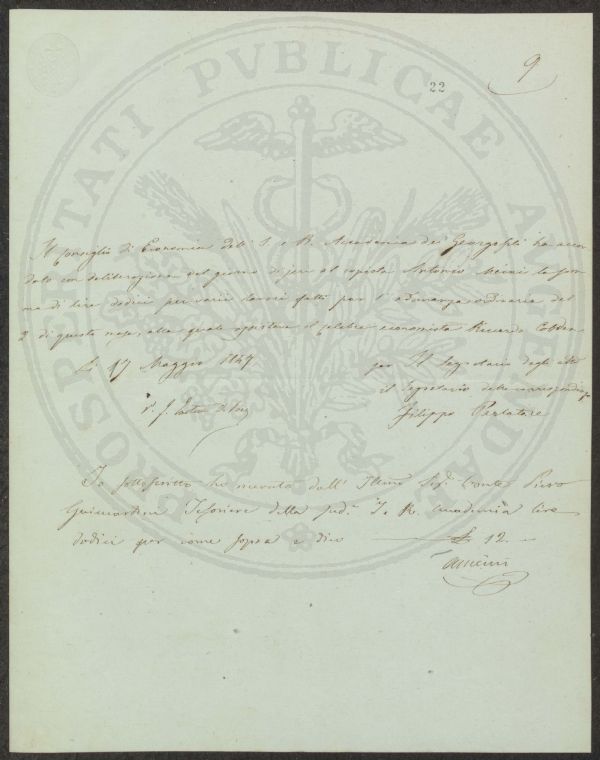 PROSPERITATI PVBLICAE AVGENDAE
9
22
Il Consiglio di Economia dell' I. e R. Accademia dei Georgofili ha accor
dato con deliberazione del giorno di jeri al custode Antonio Mcini la som
ma di lire dodici per varii lavori fatti per l' adunanza ordinaria del
2 di questo mese, alla quale assisteva il celebre economista Riccardo Cobden
Li 17 Maggio 1847
per Il Segretario degli atti
il Segretario delle corrispondenze
Filippo Parlatore
V.
Io sottoscritto ho ricevuto dall' Illmo Sig. Conte Piero
Guicciardini Tesoriere della sud.a I. e R. Accademia lire
dodici per come sopra e dico £ 12